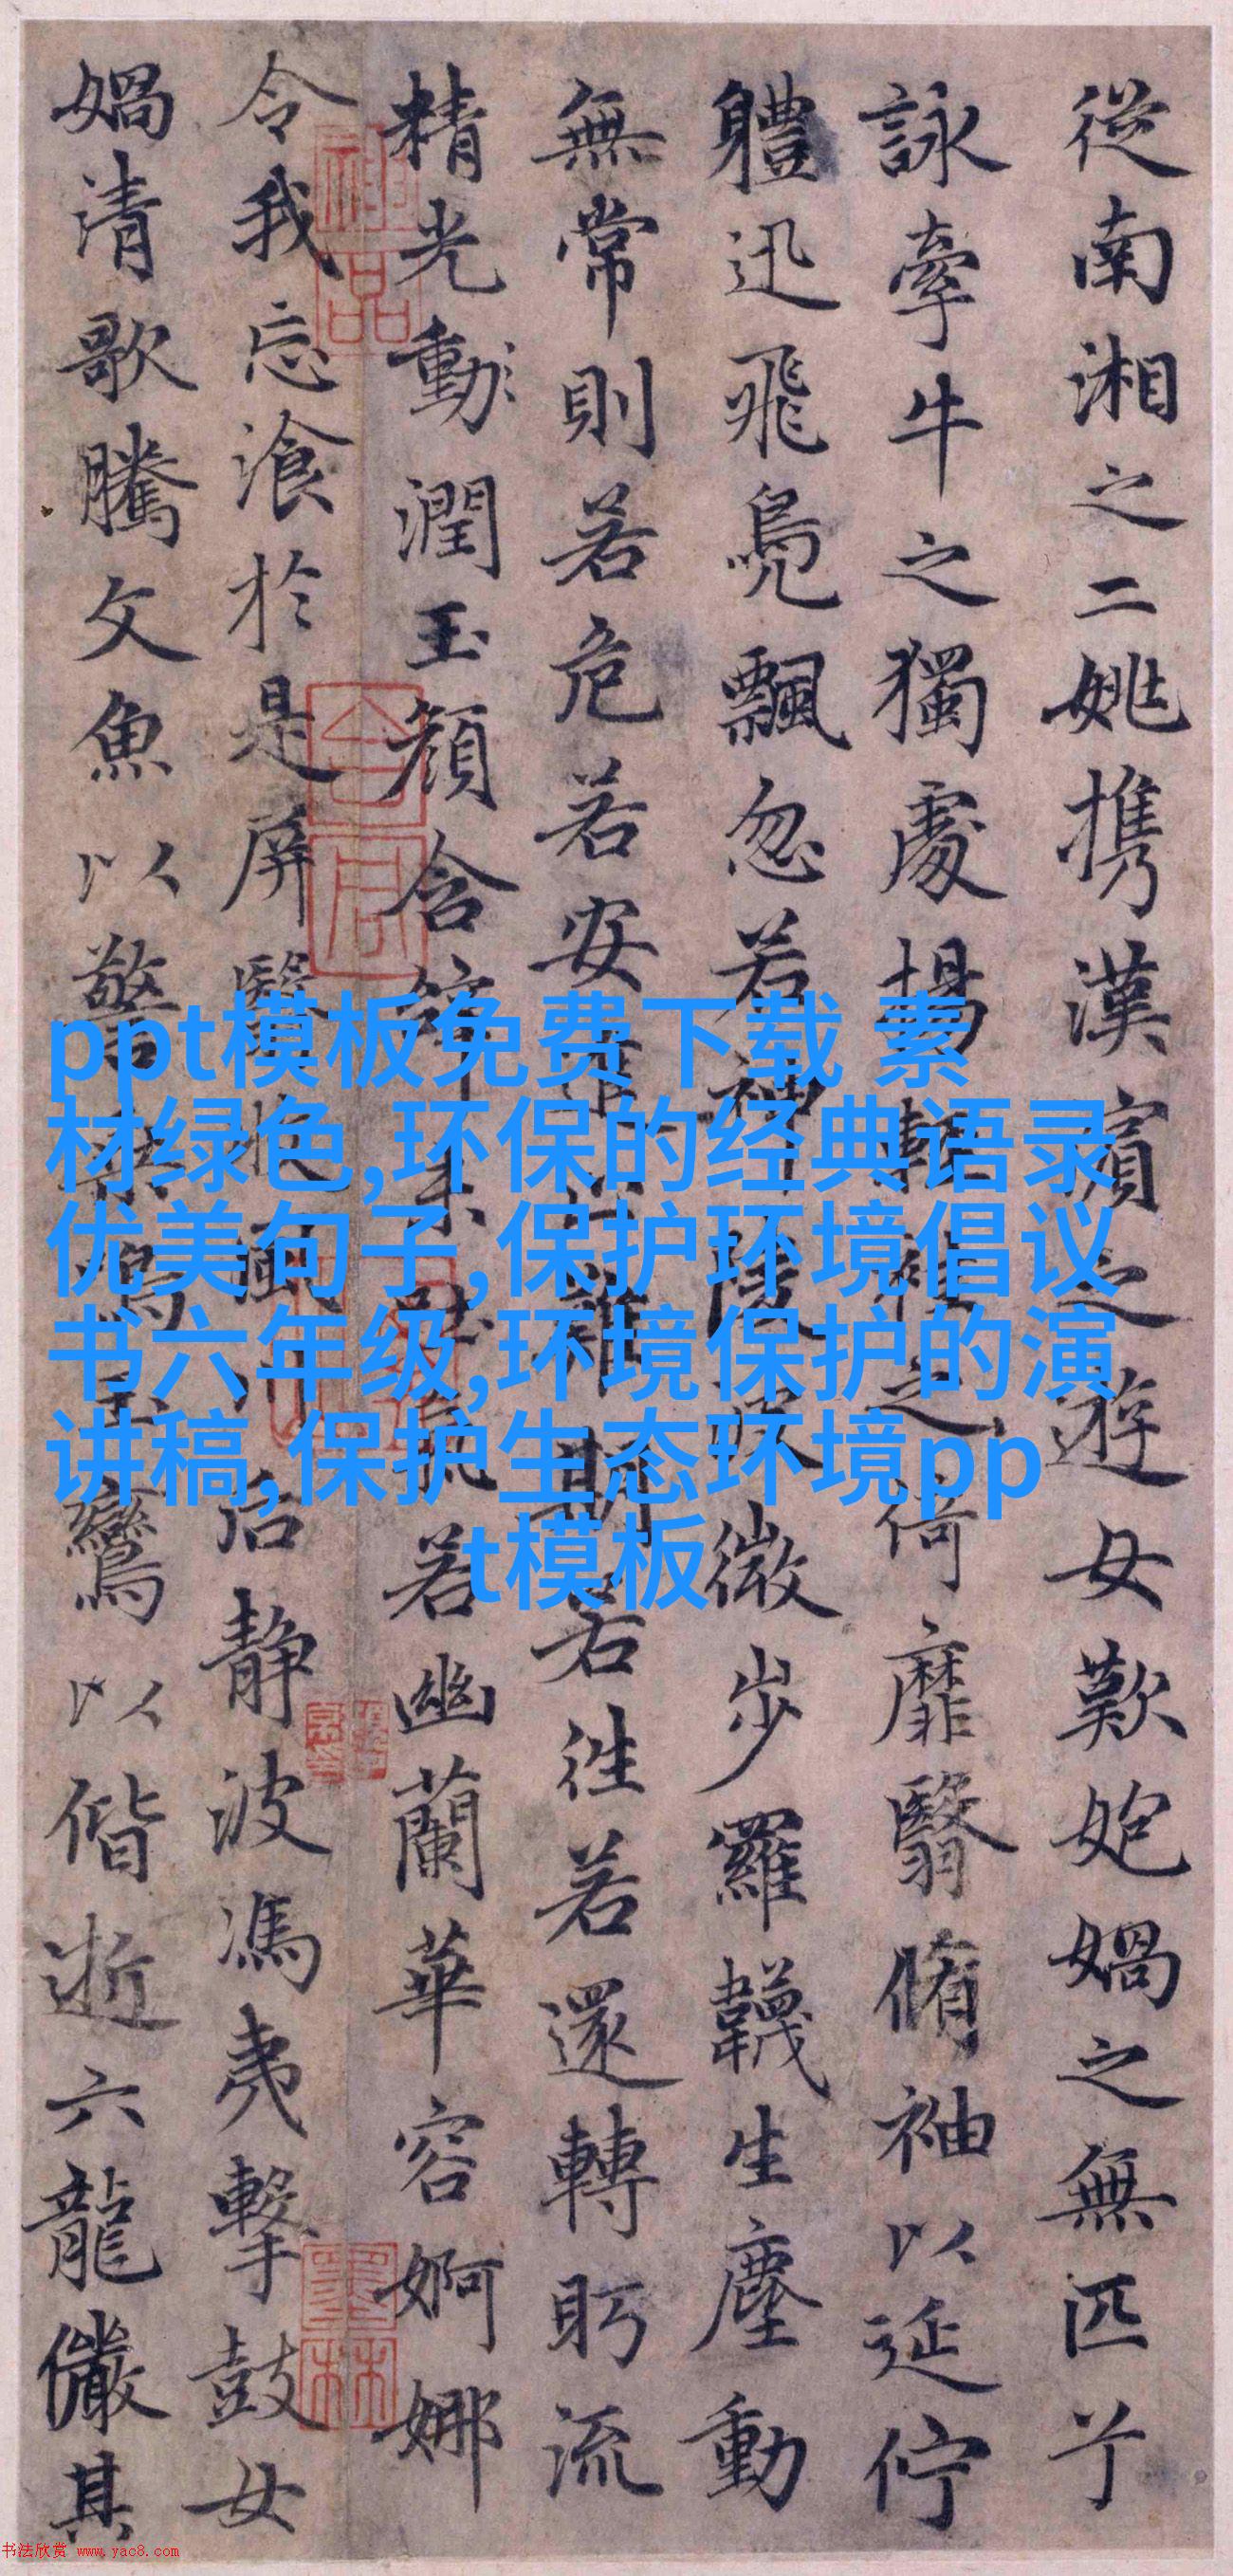 從南湘之二姚携漢濱之遊女歎㚿媧之無匹兮
詠牽牛之獨處揚輕袿之倚靡翳脩袖以延佇
軆迅飛鳧飄忽若神陵波微步羅韈生塵動
無常則若危若安進止難期若往若還轉眄流
精光動潤玉顏含辭未吐氣若幽蘭華容婀娜
令我忘飡於是屏翳收風川后靜波馮夷擊鼓女
媧清歌騰文魚以警乘鳴玉鸞以偕逝六龍儼其
神品
墨林
ppt模板免费下载 素
材绿色,环保的经典语录
优美句子,保护环境倡议
书六年级,环境保护的演
讲稿,保护生态环境pp
t模板
书法欣赏 www.yac8.com